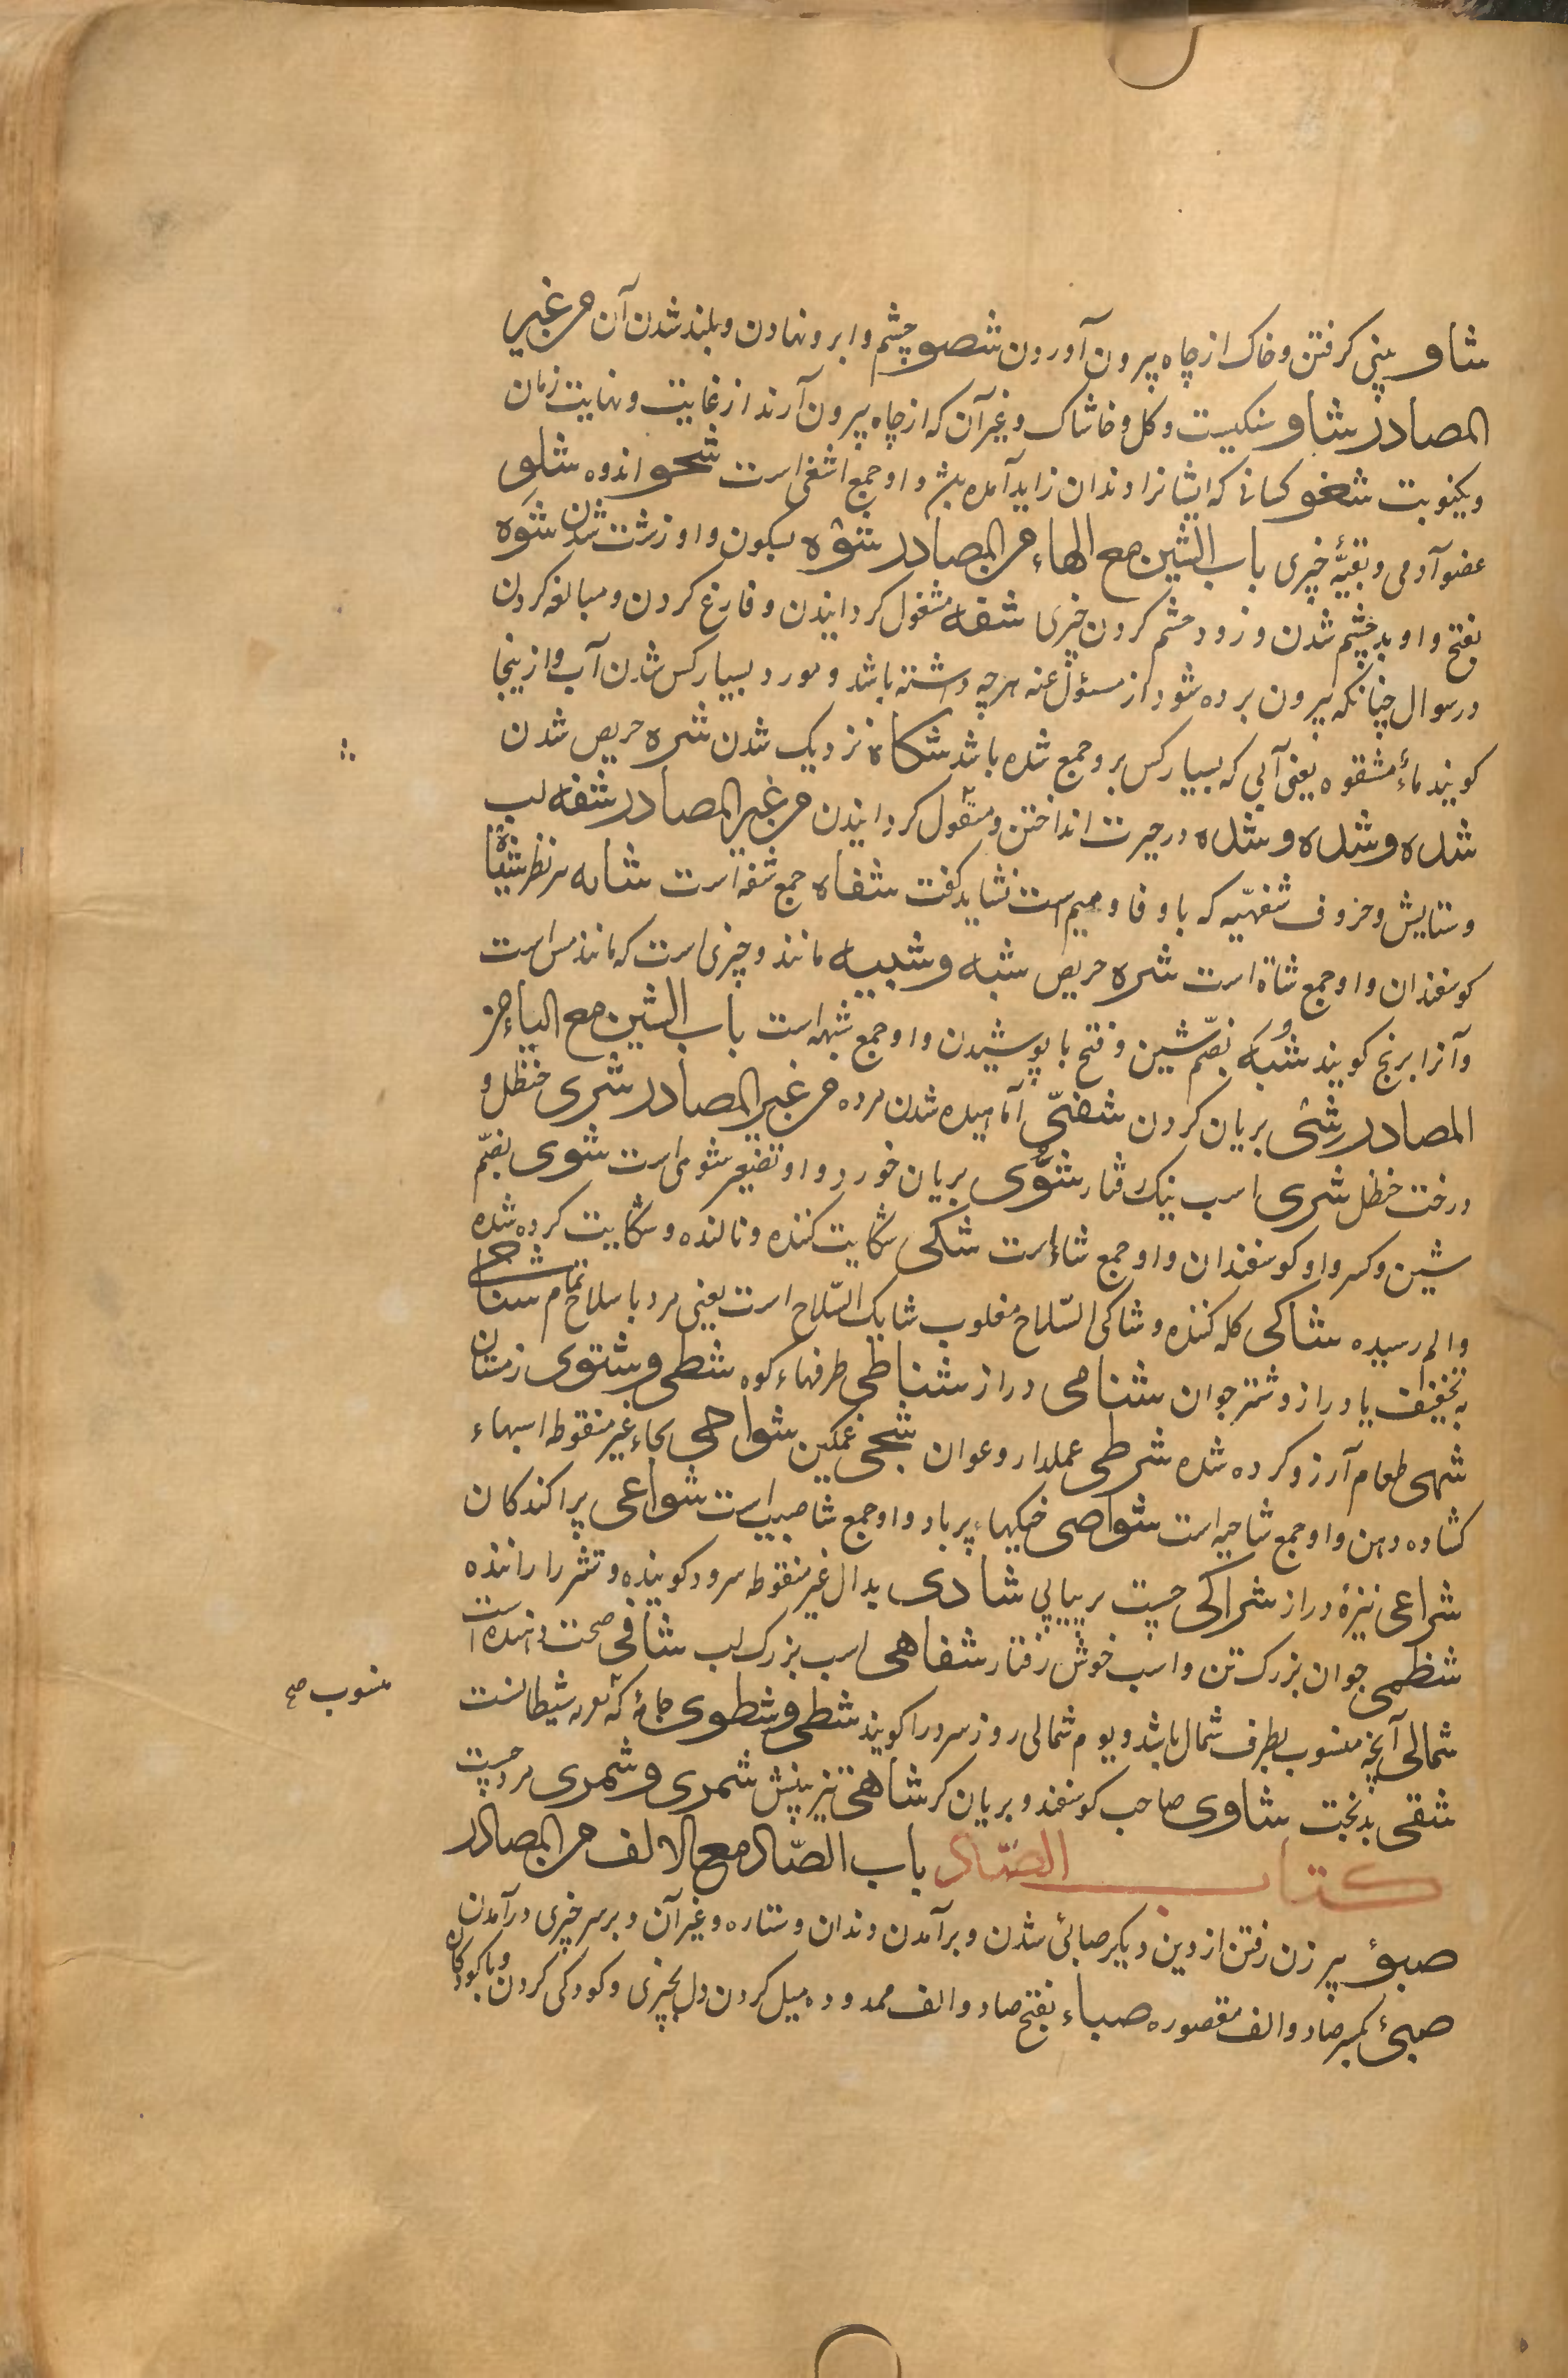 شاو پیشی کرفتن و خاک از چاه بیرون آوردن شصو چشم و ابرو نهادن و بلند شدن آن من غیر
المصادر شاو سنکیست و کل و خاشاک و غیر آن که از چاه بیرون آرند از غایت و نهایت زمان
ویکنوبت شغو کسانی که ایشانرا دندان زاید آمده باشد و او جمع اشغی است شحو اندوه شلو
عضو آدمی و بقیّهٔ چیزی باب الشین مع الهاء من المصادر شوْه بسکون واو زشت شدن شوَه
بفتح واو بد چشم شدن و زود چشم کردن چیزی شفه مشغول کردانیدن و فارغ کردن و مبالغه کردن
در سوال چنانکه بیرون برده شود از مسؤل عنه هرچه داشته باشد و بسیار کس شدن آب و ازینجا
کویند ماءٔ مشفوه یعنی آبی که بسیار کس برو جمع شده باشد شکاه نزدیک شدن شره حریص شدن
شده و شده و شده در حیرت انداختن و مشغول کردانیدن من غیر المصادر شفه لب
و ستایش و حروف شفهیّه که با و فا و میم است نشاید کفت شفاه جمع شفه است شابه تیز نظر شیاه
کوسفندان و او جمع شاة است شره حریص شبه و شبیه مانند و چیزی است که مانند مس است
و آنرا برنج کویند شُبَه بضمّ شین و فتح با پوشیدن و او جمع شبهه است باب الشین مع الیاء من
المصادر شی بریان کردن شضیّ آماهیده شدن مرده من غیر المصادر شری حنظل و
درخت حنظل شری اسب نیک رفتار شوّی بریان خورد و او تصغیر شوی است شوی بضمّ
شین و کسر واو کوسفندان و او جمع شاء است شکی شکایت کننده و نالنده و شکایت کرده شده
و الم رسیده شاکی کله کننده و شاکی السّلاح مقلوب شایک السّلاح است یعنی مرد با سلاح تمام شناحی
به تخفیف یا دراز و شتر جوان شنامی دراز شناظی طرفهاء کوه شطی و شتوی زمستان
شهی طعام آرزو کرده شده شرطی عملدار و عوان شجی غمکین شواحی بحاء غیر منقوطه اسبهاء
کشاده دهن و او جمع شاحیه است شواصی خیکهاء پر باد و او جمع شاصیه است شواعی پراکندکان
شراعی نیزهٔ دراز شراکی چست پیاپی شادی بدال غیر منقوطه سرود کوینده و شتر را راننده
شظمی جوان بزرک تن و اسب خوش رفتار شفاهی اسب بزرک لب شافی صحت دهنده است
شمالی آنچه منسوب بطرف شمال باشد و یوم شمالی روز سرد را کویند شطی و شطوی جامهٔ که بشیطانست
منسوب صح
شقی بدبخت شاوی صاحب کوسفند و بریان کر شاهی تیز بینش شمری و شمری مرد چست
کتاب الصّاد باب الصّاد مع الالف من المصادر
صبؤ بر زن رفتن از دین دیکر صبائی شدن و برآمدن دندان و ستاره و غیر آن و بر سر چیزی درآمدن
صبیٔ بکسر صاد و الف مقصوره صباء بفتح صاد و الف ممدوده میل کردن دل بچیزی و کودکی کردن و با کودکان